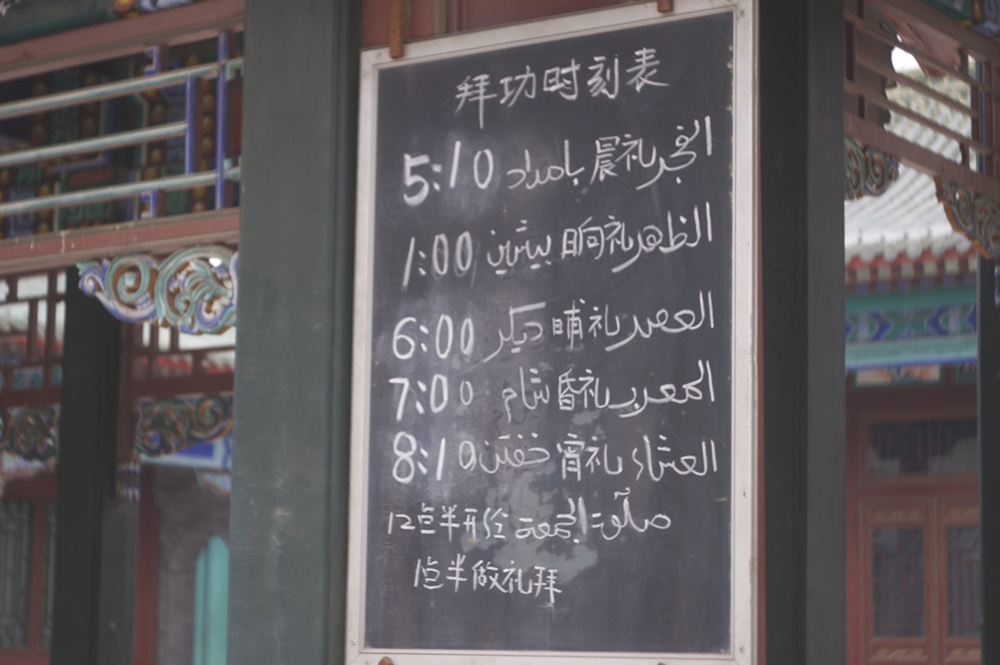 拜功时刻表
5:10 بامداد 晨礼 الفجر
1:00 بيشين 晌礼 الظهر
6:00 ديكر 晡礼 العصر
7:00 شام 昏礼 المغرب
8:10 خفتن 宵礼 العشاء
12点半开经 صلوة الجمعة
1点半做礼拜